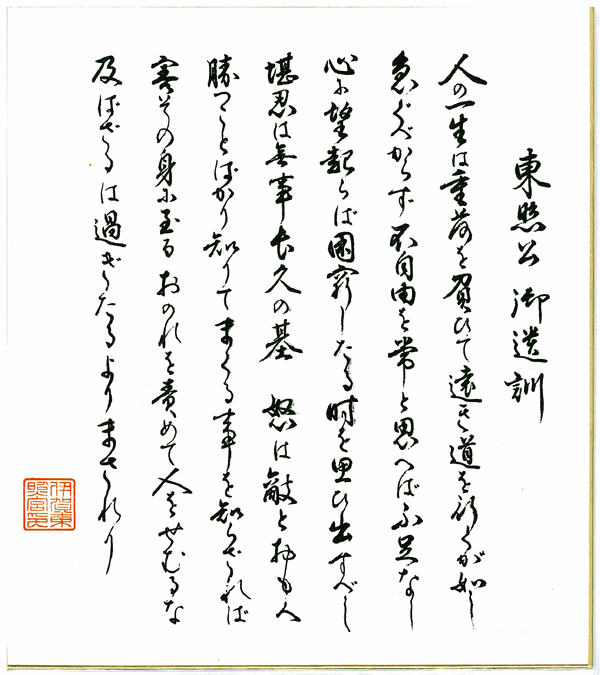 東照公御遺訓
人の一生は重荷を負ひて遠き道を行くが如し
急ぐべからず不自由を常と思へば不足なし
心に望起らば困窮したる時を思ひ出すべし
堪忍は無事長久の基 怒は敵とおもへ
勝つことばかり知りてまくる事を知らざれば
害その身に至る おのれを責めて人をせむるな
及ばざるは過ぎたるよりまされり
伊賀東
照宮印